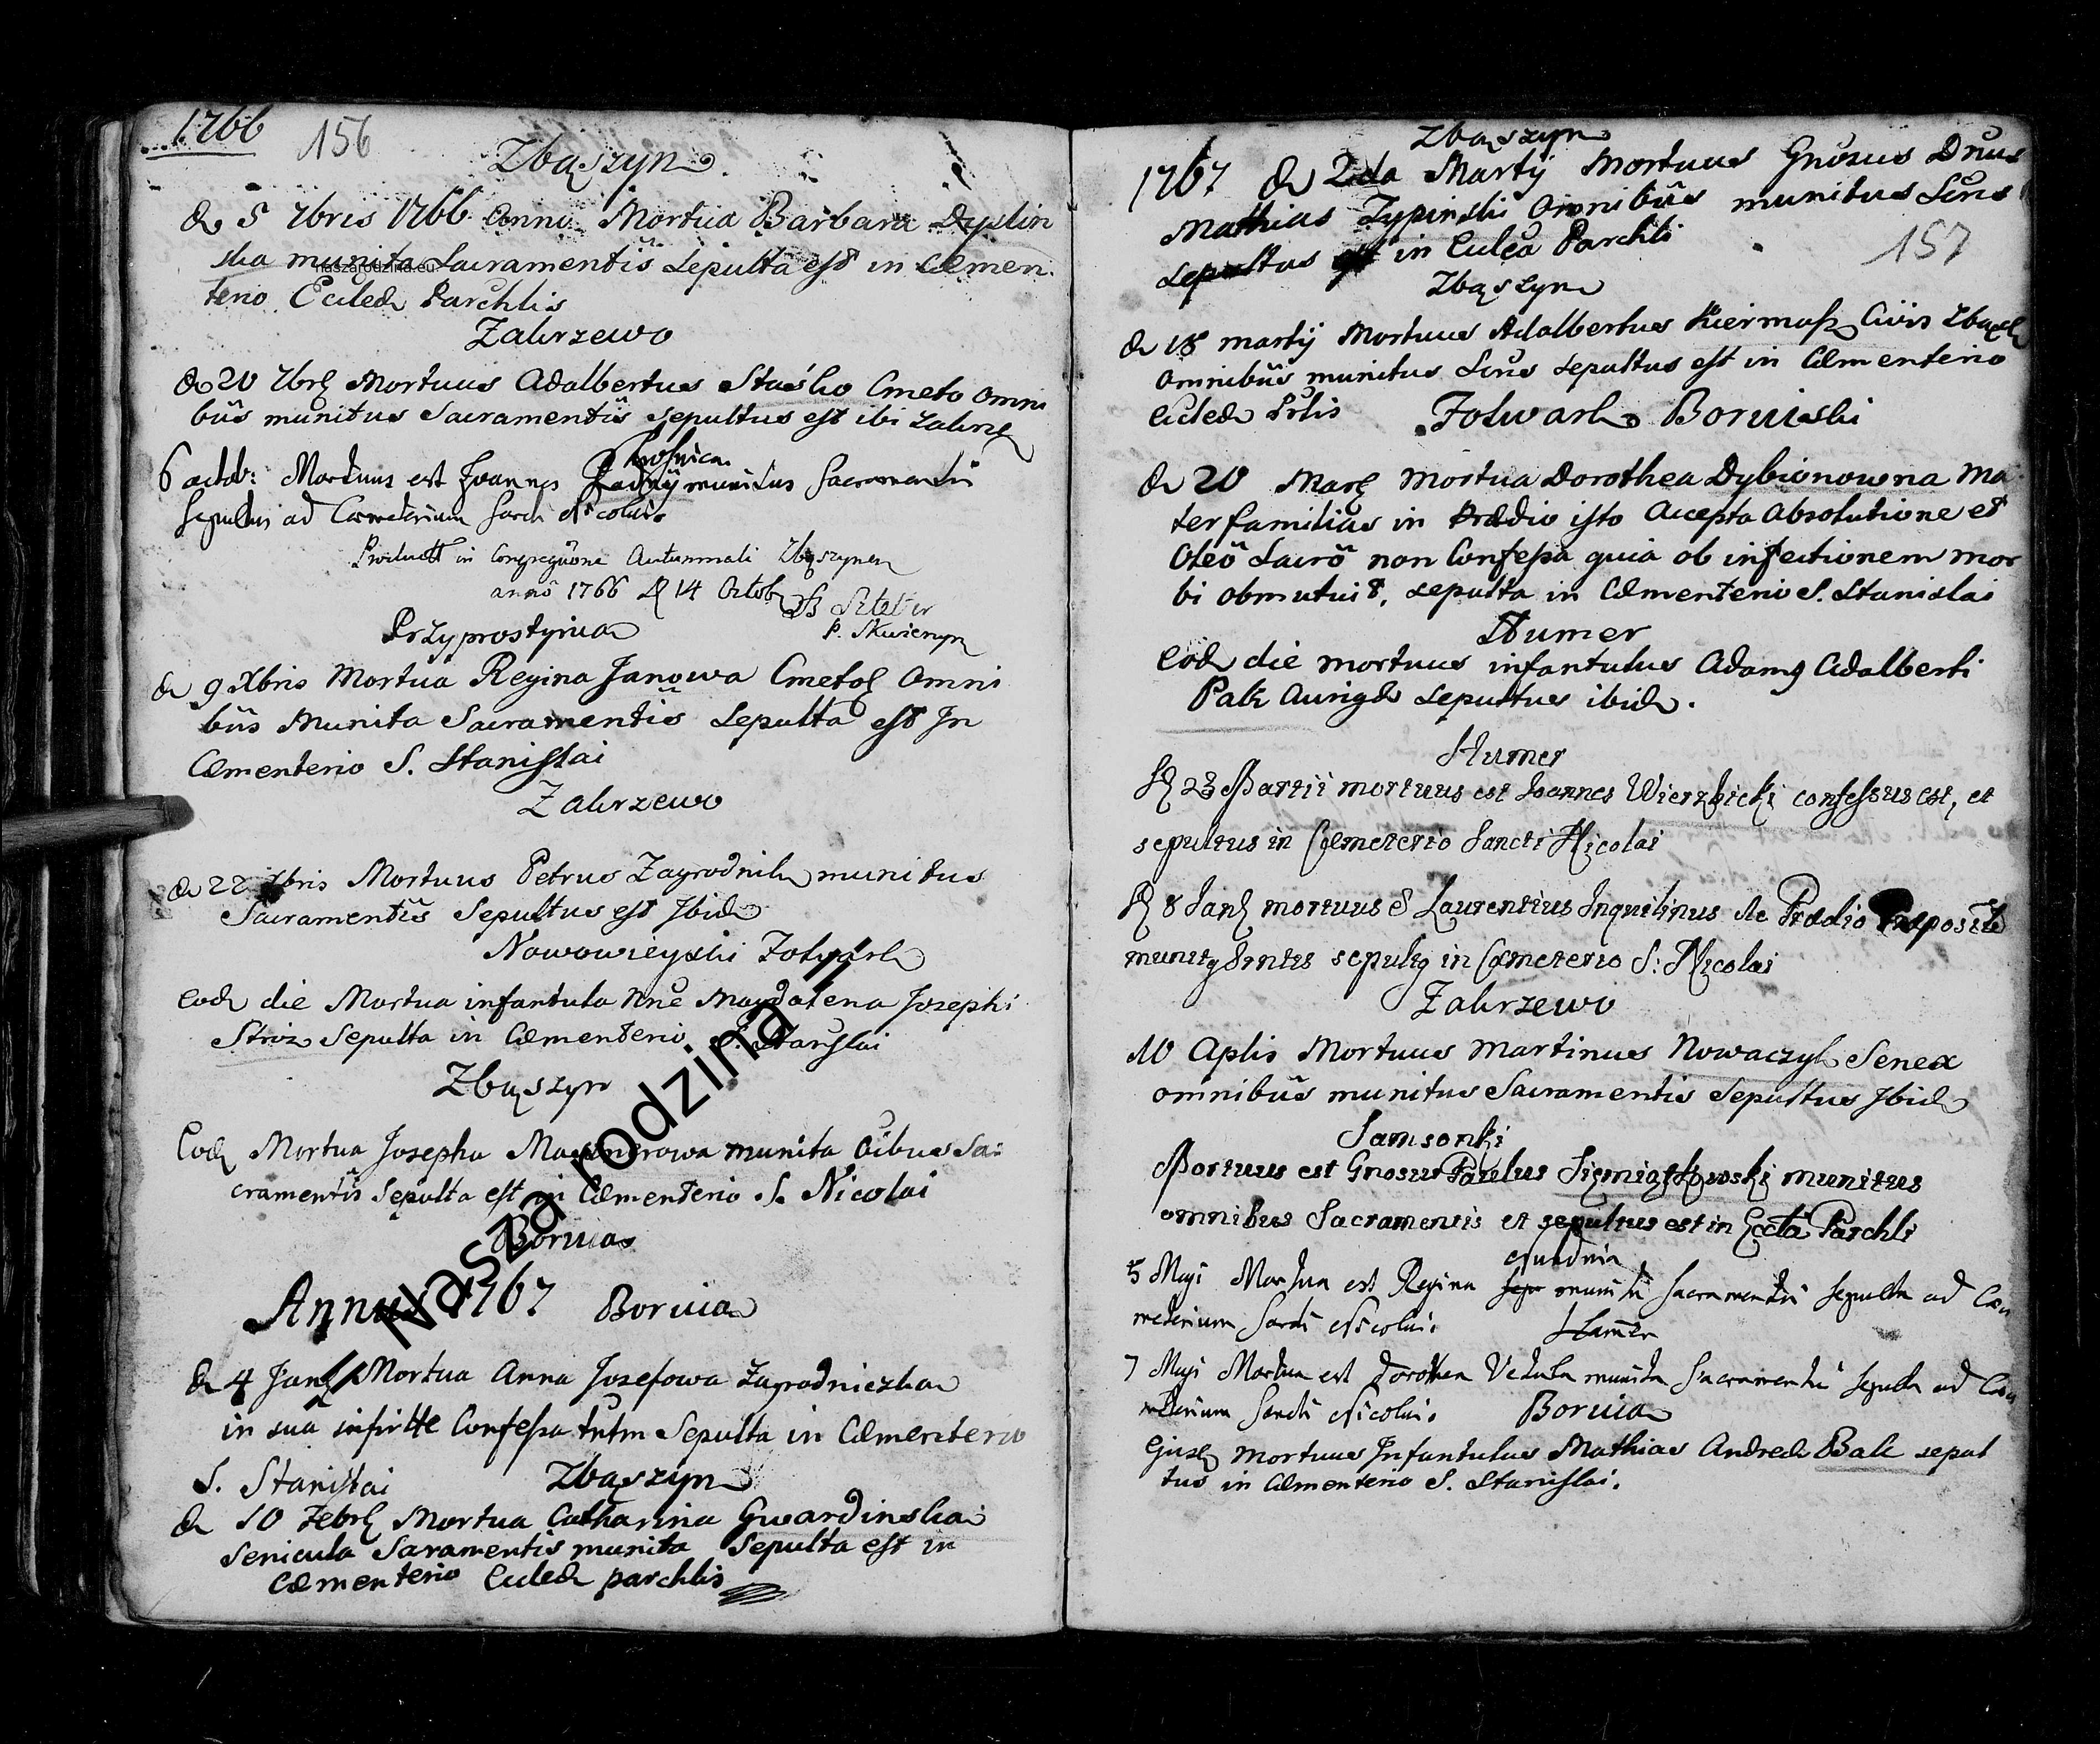 1766
156
Zbąszyn
De 5 7bris 1766 Anno Mortua Barbara Dyslin
ska munita Sacramentis Sepulta est in Cœmen
terio Eccleæ Parchlis
Zakrzewo
De 20 7brę Mortuus Adalbertus Staśko Cmeto Omni
bus munitus Sacramentis Sepultus est ibi
6 octob: Mortuus est Joannes munitus Sacramentis
Sepultus ad Cœmeterium Sancti Nicolai.
in Congregõne Autumnali Zbąszynen
anno 1766 D 14 Octob
P. Skwierzyn
Przyprostynia
De 9 Xbris Mortua Regina Janowa Omni
bus Munita Sacramentis Sepulta est In
Cœmenterio S. Stanislai
Zakrzewo
De 22 Mortuus Petrus Zagrodnik munitus
Sacramentis Sepultus est Ibid
Nowowieyski Folwark
Eod die Mortua infantula Nne Magdalena Josephi
Stroz Sepulta in Cœmenterio S. Stanislai
Zbąszyn
Eod Mortua Josepha munita Oibus Sa
cramentis Sepulta est in Cœmenterio S. Nicolai
Boruia
Annus 1767 Boruia
De 4 Janę Mortua Anna Josefowa Zagrodniczka
in sua infirtte Confessa tntm Sepulta in Cœmenterio
S. Stanislai Zbąszyn
De 10 Febrę Mortua Catharina Gwardinska
Senicula Saramentis munita Sepulta est in
Cœmenterio Eccleæ parchlis
Zbąszyn
1767 De 2da Martij Mortuus Gnosus Dnus
Mathias Typinski Omnibus munitus Scris
Sepultus est in Ecclea Parchli
157
Zbąszyn
De 18 martij Mortuus Adalbertus Kiermasz Civis
omnibus munitus Scris Sepultus est in Cœmenterio
Eccleæ Prlis Folwark Boruiski
De 20 Marę Mortua Dorothea Dybionowna Ma
terfamilias in Prædio isto Accepta Absolutione et
Oleo Sacro non Confessa quia ob infectionem mor
bi obmutuit, sepulta in Cœmenterio S. Stanislai
Humer
Eod die mortuus infantulus Adamg Adalberti
Palk Aurigæ Sepultus ibid.
Humer
D 23 Martii mortuus est Joannes Wierzbicki confessus est, et
sepultus in Cœmeterio Sancti Nicolai
D 8 Janę mortuus e Laurentius Inquilinus de Prædio Præposit
munitg Smtis sepultg in Cœmeterio S: Nicolai
Zakrzewo
10 Aplis Mortuus Martinus Nowaczyk Senex
omnibus munitus Sacramentis Sepultus Ibid
Samsonki
Mortuus est Gnosus Paulus munitus
omnibus Sacramentis et sepultus est in Eccta Parchli
5 Maji Mortua est Regina munita Sacramentis Sepulta ad Cœ
meterium Sancti Nicolai. Hamer
7 Maji Mortua est Dorothea Vetula munita Sacramentis Sepulta ad Cœ
meterium Sancti Nicolai. Boruia
Ejusd mortuus Infantulus Mathias Andreæ Balc sepul
tus in Cœmenterio S. Stanislai.
naszarodzina.eu
// Nasza rodzina //